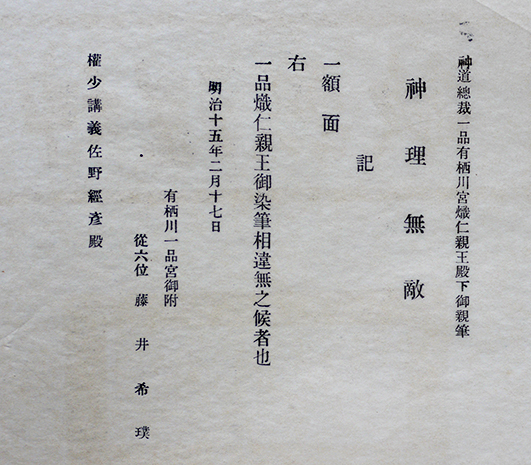 神道總裁一品有栖川宮熾仁親王殿下御親筆
神理無敵
記
一額面
右
一品熾仁親王御染筆相違無之候者也
明治十五年二月十七日
有栖川一品宮御附
從六位 藤井希璞
權少講義佐野經彥殿